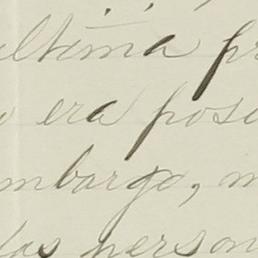 ultima pr
era posi
mbargo, m
las person